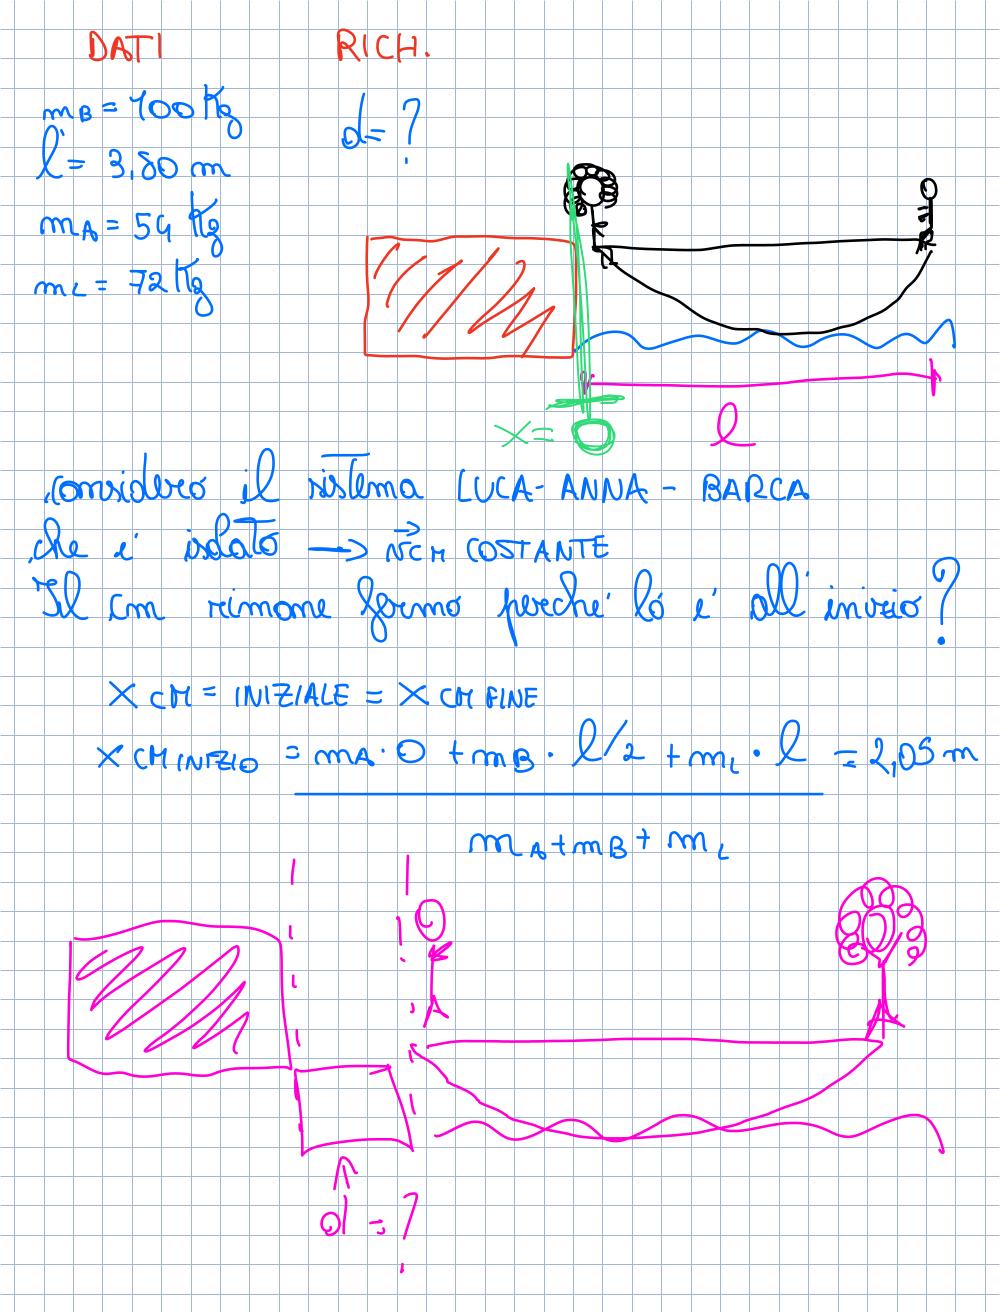 DATI RICH.
mB = 100 Kg
d = ?
l = 3,80 m
mA = 54 Kg
mL = 72 Kg
l
x = 0
considero il sistema LUCA - ANNA - BARCA
che e' isolato → v⃗CM COSTANTE
Il cm rimane fermo perche' lo e' all'inizio?
X CM = INIZIALE = X CM FINE
X CM INIZIO = mA · 0 + mB · l/2 + mL · l = 2,05 m
mA + mB + mL
d = ?